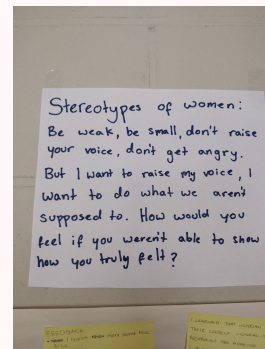 Stereotypes of women:
Be weak, be small, don't raise
your voice, don't get angry.
But I want to raise my voice, I
want to do what we aren't
supposed to. How would you
feel if you weren't able to show
how you truly felt?
FEEDBACK
I LEARNED THAT